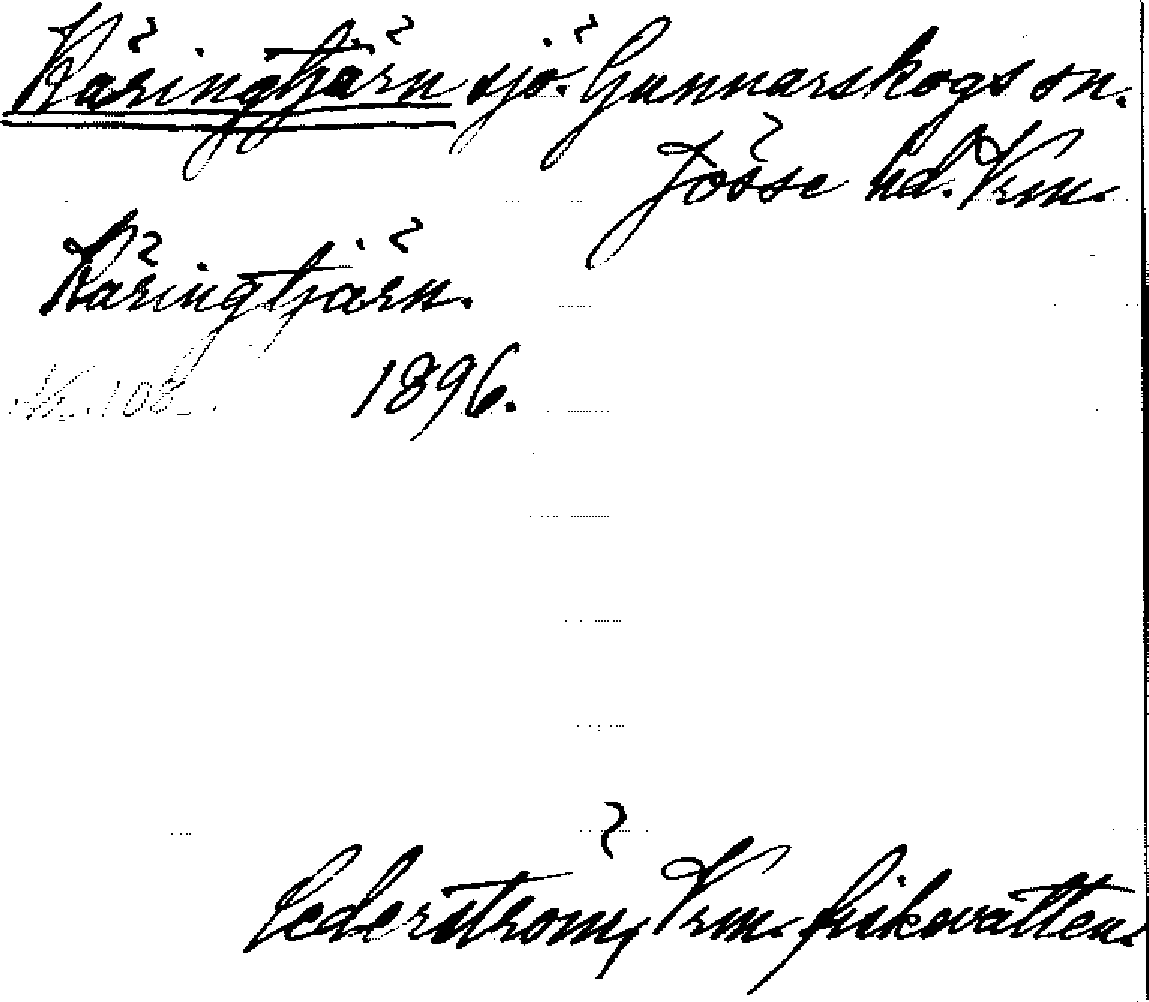 Käringtjärn sjö. Gunnarskogs sn.
Jösse hd. Vrm.
Käringtjärn.
Nr. 108. 1896.
Cederström, Vrm. fiskevatten.